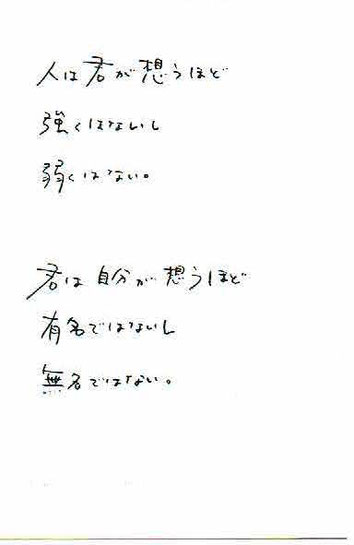 人は君が想うほど
強くはないし
弱くはない。
君は自分が想うほど
有名ではないし
無名ではない。